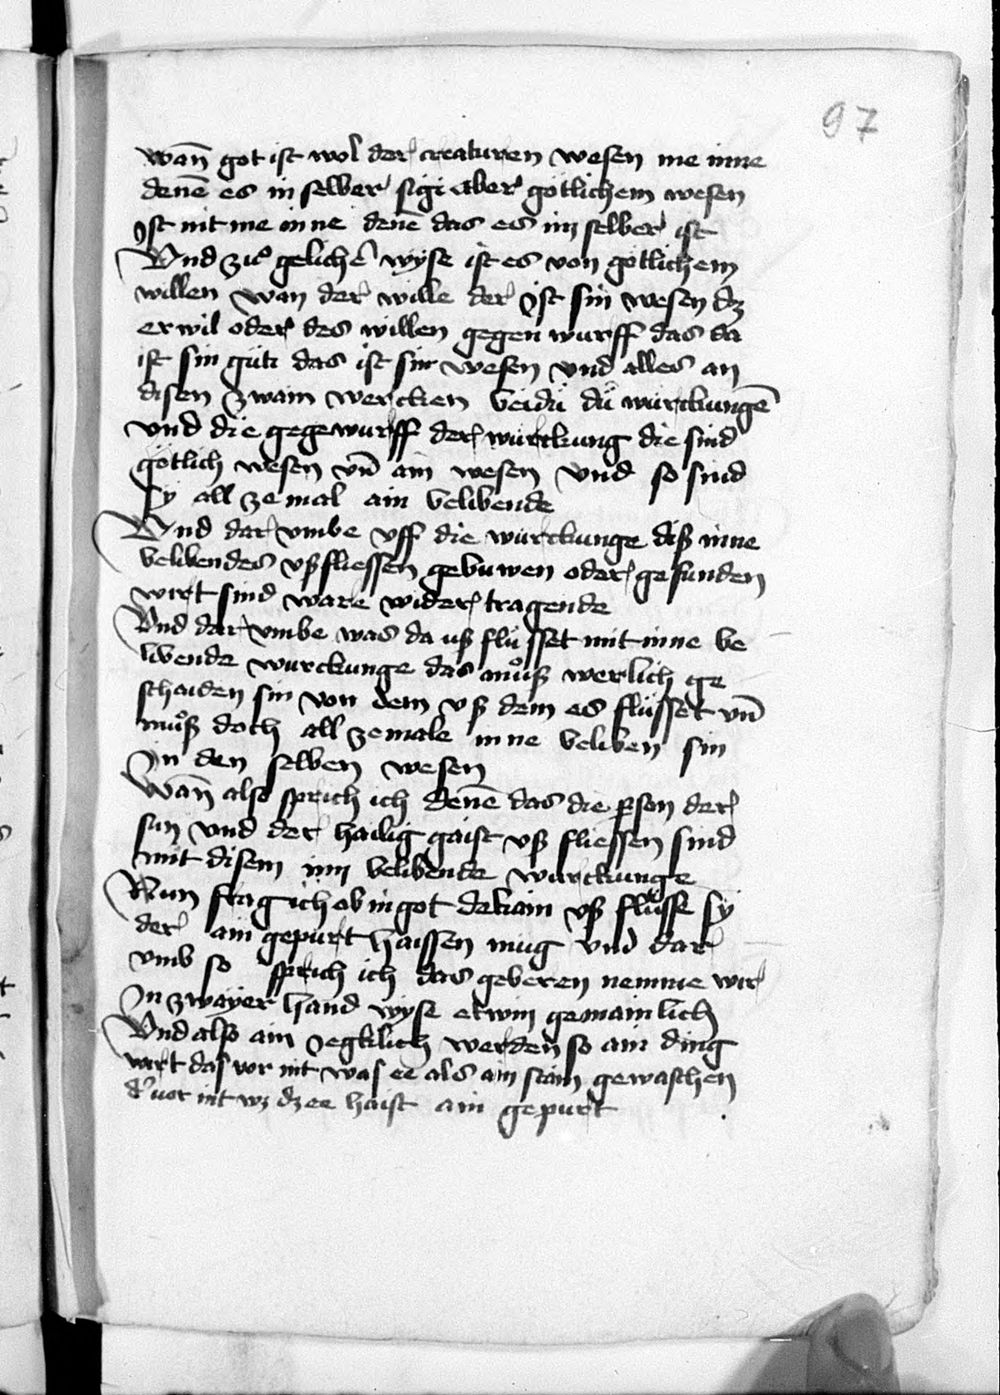 97
wan̄ got ist wol der creaturen wesen me inne
denē es in selber sigi aber götlichem wesen
Ist nit me inne denē das es im selber ist
Vnd zuͦ gelicher wyse ist es von götlichem
willen wan der wille der ist sin wesen dz
er wil oder des willen gegen wurff das da
ist sin güti das ist sin wesen vnd alles an
disen zwain wercken beidü dü würckungē
vnd die gegewurff der würckung die sind
götlich wesen vn̄ ain wesen vnd so sind
sy all ze mal ain belibende
Vnd dar vmbe vff die würckunge diß inne
belibendes vßfliessen gebuwen oder gefunden
wirt sind ware wider tragende
Vnd dar vmbe was da uß flüsset mit inne be
libende wurckunge das muͦß werlich ge
schaiden sin von dem vß dem es flüsset vn̄
muͦß doch all ze male inne beliben sin
In den selben wesen
Wan̄ also sprich ich denē das die ꝑson der
sun vnd der hailig gaist vß fliessen sind
mit disem inn belibende würckunge
Nun frag ich ob in got dekain vß flüsse sy
der ain gepurt haissen mug vnd dar
vmb so sprich ich das geberen nemme wir
In zwayer hand wyse etwin gemainlich
Vnd also ain yegklich werden so ain ding
wirt das vor nit was ee als ain stain gewaschen
d' vor nit wz dz ee haist ain gepurt